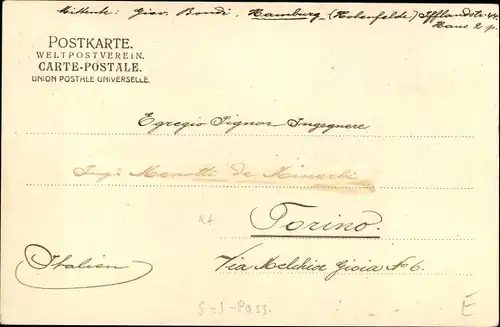 Mittent: Giov. Bondi. Hamburg (Hohenfelde) Ifflandstr.
Haus 2 p.
POSTKARTE.
WELTPOSTVEREIN.
CARTE-POSTALE.
UNION POSTALE UNIVERSELLE.
Egregio Signor Ingegnere
Ing: Menotti de Minerbi
Torino.
Via Melchior Gioia No 6.
Italien
S-S-Pass.
E